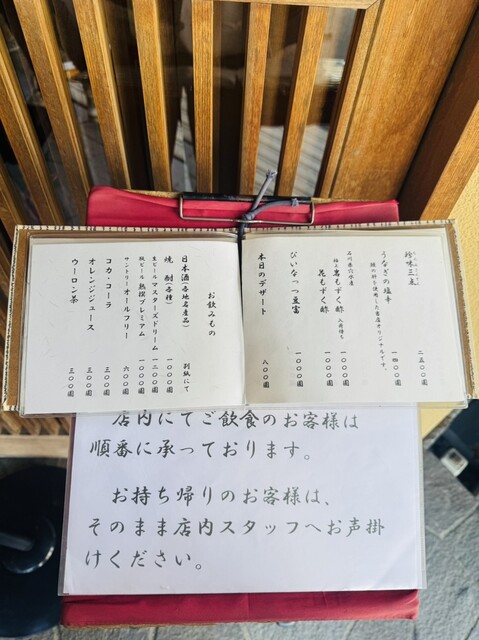 珍味三点 二五〇〇圓
うなぎの塩辛 一四〇〇圓
鰻の肝を使用した当店オリジナルです。
石川県穴水産
極上岩もずく酢 入荷待ち 一〇〇〇圓
花もずく酢 一〇〇〇圓
ぴいなっつ豆富 一〇〇〇圓
本日のデザート 八〇〇圓
お飲みもの
日本酒(各地名産品) 別紙にて
焼酎(各種) 一〇〇〇圓
生ビールマスターズドリーム 一二〇〇圓
瓶ビール 熟撰プレミアム 一〇〇〇圓
サントリーオールフリー 六〇〇圓
コカ・コーラ 三〇〇圓
オレンジジュース 三〇〇圓
ウーロン茶 三〇〇圓
店内にてご飲食のお客様は
順番に承っております。
お持ち帰りのお客様は、
そのまま店内スタッフへお声掛
けください。